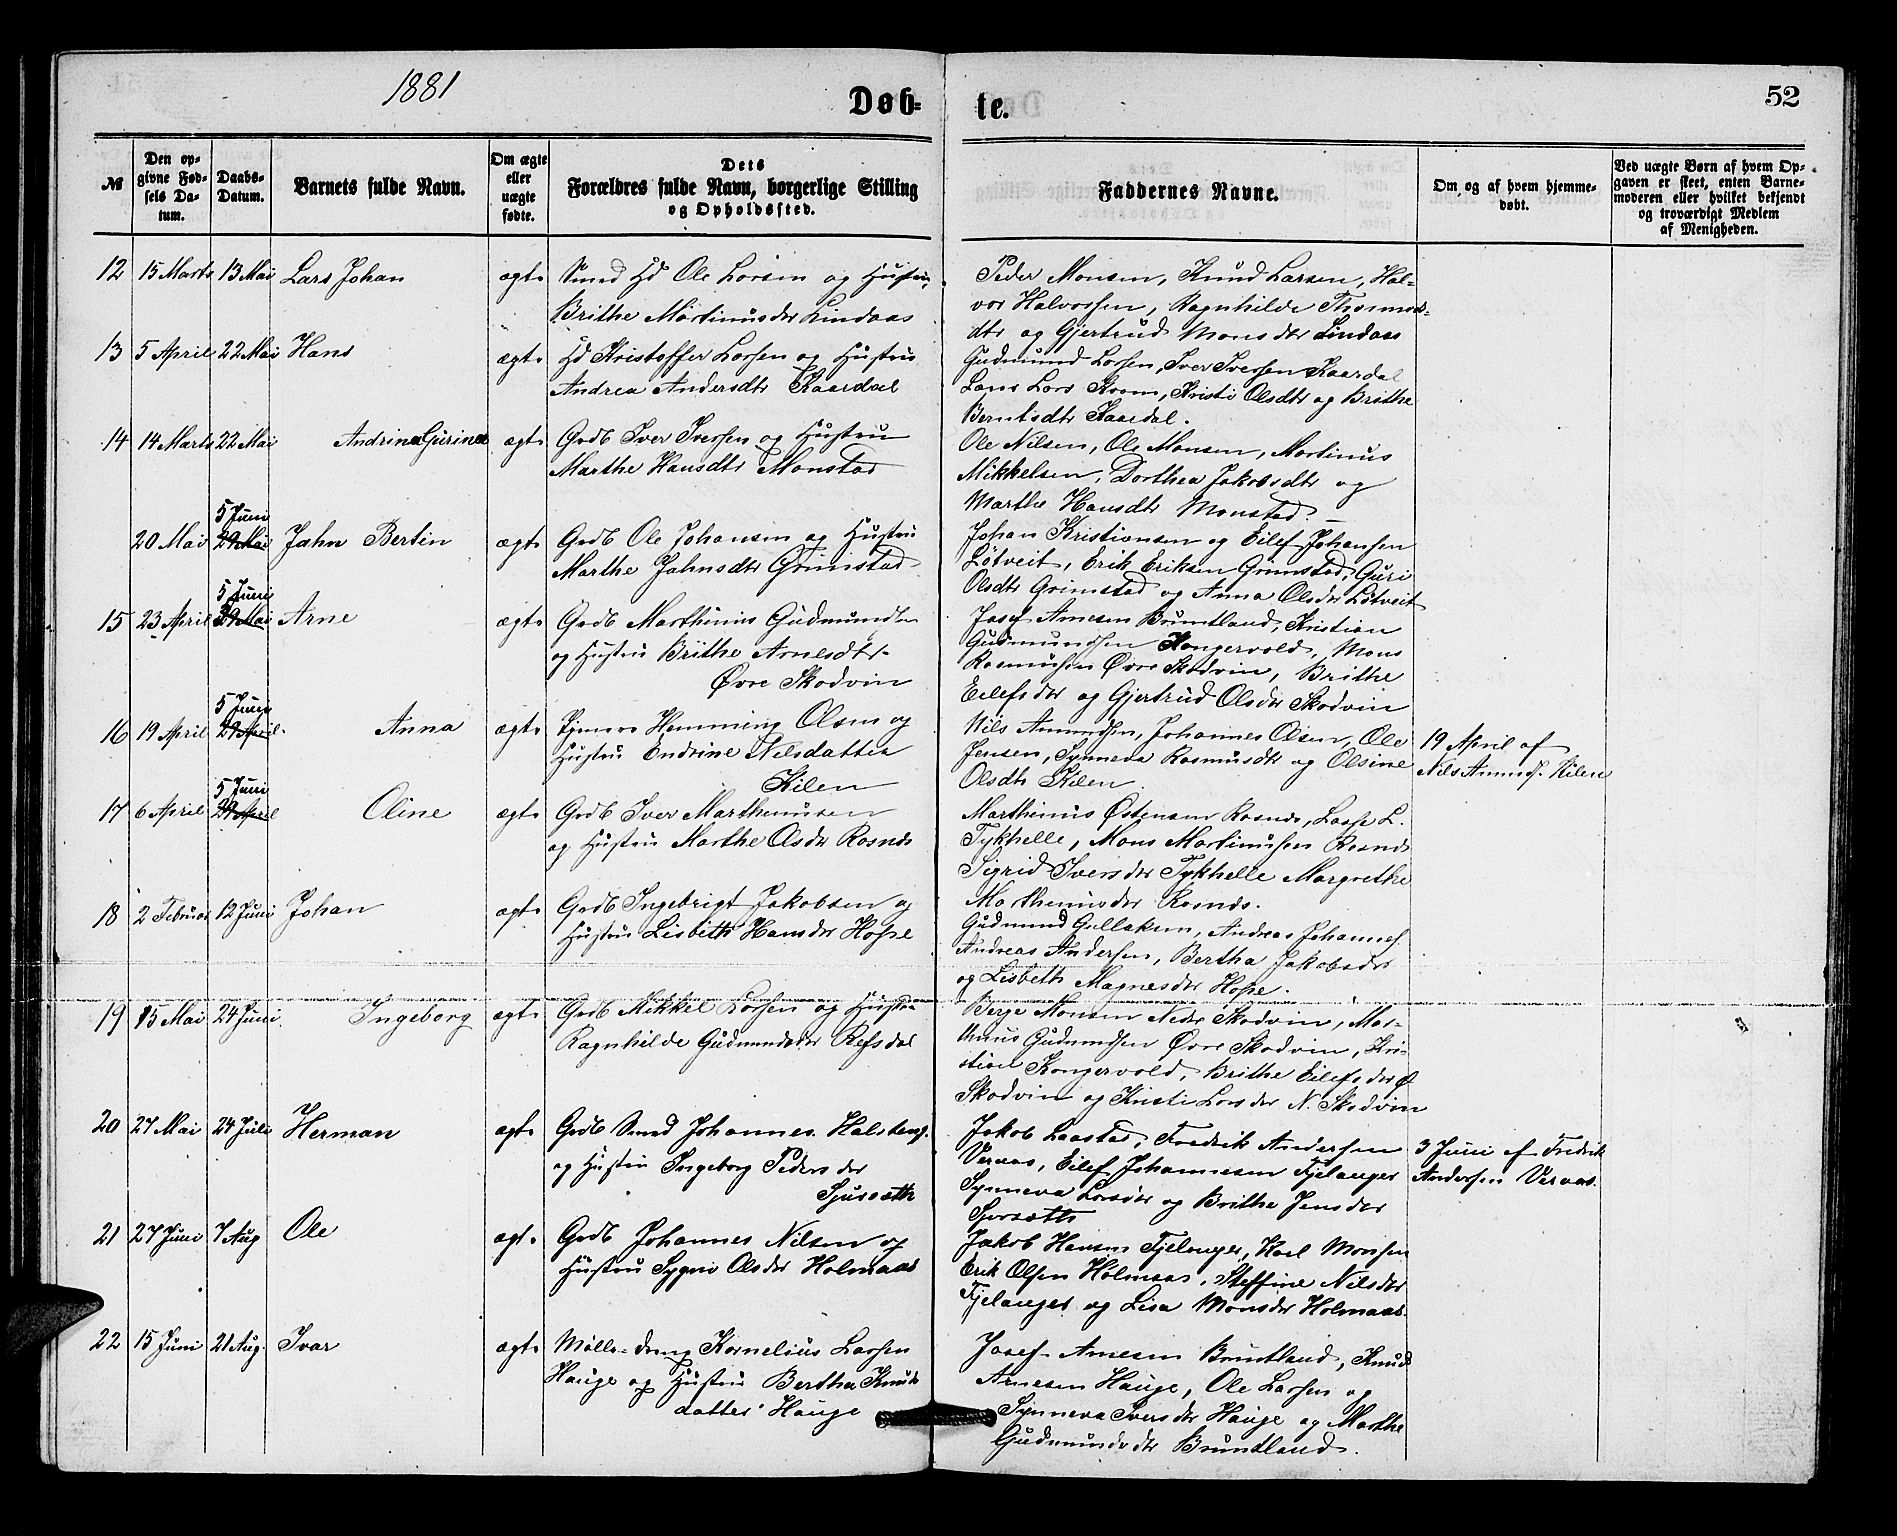 1881
Døb-
te.
52
№
Den op-
givne Fød-
sels Da-
tum.
Daabs-
Datum.
Barnets fulde Navn.
Om ægte
eller
uægte
fødte.
Dets
Forældres fulde Navn, borgerlige Stilling
og Opholdssted.
Faddernes Navne.
Om og af hvem hjemme-
døbt.
Ved uægte Børn af hvem Op-
gaven er skeet, enten Barne-
moderen eller hvilket bekjendt
og troværdigt Medlem
af Menigheden.
12 15 Marts 13 Mai Lars Johan ægte Smed Hd Ole Larsen og Hustru
Brithe Martinusdtr Lindaas
Peder Monsen, Knud Larsen, Hal-
vor Halvorsen, Ragnhilde Thormods-
dtr og Gjertrud Monsdtr Lindaas
13 5 April 22 Mai Hans ægte Hd Kristoffer Larsen og Hustru
Andrea Andersdtr Kaardal
Gudmund Larsen, Iver Iversen Kaardal
Lars Strøm, Kristi Olsdtr og Brithe
Berntsdtr Kaardal.
14 14 Marts 22 Mai Andrine Gurine ægte Grdb Iver Iversen og Hustru
Marthe Hansdtr Monstad
Ole Nilsen, Ole Monsen, Martinus
Mikkelsen, Dorthea Jakobsdtr og
Marthe Hansdtr Monstad.
5 Juni
20 Mai 29 Mai Jahn Bertin ægte Grdb Ole Johansen og Hustru
Marthe Jahnsdtr Grimstad
Johan Kristiansen og Eilef Johansen
Løtveit, Erik Eriksen Grimstad, Guri
Olsdtr Grimstad og Anna Olsdtr Løtveit
5 Juni
15 23 April 29 Mai Arne ægte Grdb Marthinus Gudmundsen
og Hustru Brithe Arnesdtr
Øvre Skodvin
Josef Arnesen Bruntland, Kristian
Gudmundsen Kongervold, Mons
Rasmusen Øvre Skodvin, Brithe
Eilefsdtr og Gjertrud Olsdtr Skodvin
5 Juni
16 19 April 29 April Anna ægte Hemming Olsen og
Hustru Endrine Nilsdatter
Kilen
Nils Amundsen, Johannes Olsen, Ole
Jensen, Synneva Rasmusdtr og Olsine
Olsdtr Kilen
19 April af
Nils Amunds. Kilen
5 Juni
17 6 April 29 April Oline ægte Grdb Iver Marthinusen
og Hustru Marthe Olsdtr Rosnes
Marthinus Østensen Rosnes, Lasse L.
Tykhelle, Mons Martinusen Rosnes
Sigrid Iversdtr Tykhelle Margrethe
Marthinusdtr Rosnes.
18 2 Februar 12 Juni Johan ægte Grdb Ingebrigt Jakobsen og
Hustru Lisbeth Hansdtr Hope
Gudmund Gullaksen, Andreas Johannes.
Andreas Andersen, Bertha Jakobsdtr
og Lisbeth Magnesdtr Hope.
19 15 Mai 24 Juni Ingeborg ægte Grdb Mikkel Larsen og Hustru
Ragnhilde Gudmundsdtr Refsdal
Berje Monsen Nedre Skodvin, Mar-
thinus Gudmundsen Øvre Skodvin, Kri-
stian Kongervold, Brithe Eilefsdtr Ø
Skodvin og Kristi Larsdtr N. Skodvin
20 27 Mai 24 Juli Herman ægte Grdb Smed Johannes Halstens.
og Hustru Ingeborg Pedersdtr
Sjursæth
Jakob Laastad, Fredrik Andersen
Veraas, Eilef Johannesen Fjelanger
Synneva Larsdtr og Brithe Jensdtr
Sjursæth
3 Juni af Fredrik
Andersen Veraas.
21 27 Juni 7 Aug Ole ægte Grdb Johannes Nilsen og
Hustru Sygni Olsdtr Holmaas
Jakob Hansen Fjelanger, Karl Monsen
Erik Olsen Holmaas, Steffine Nilsdtr
Fjelanger og Lisa Monsdtr Holmaas
22 15 Juni 21 Aug. Ivar ægte Mølle-dreng Kornelius Larsen
Hauge og Hustru Berthe Knuds
datter Hauge
Josef Arnesen Bruntland, Knud
Arnesen Hauge, Ole Larsen og
Synneva Iversdtr Hauge og Marthe
Gudmundsdtr Bruntland.